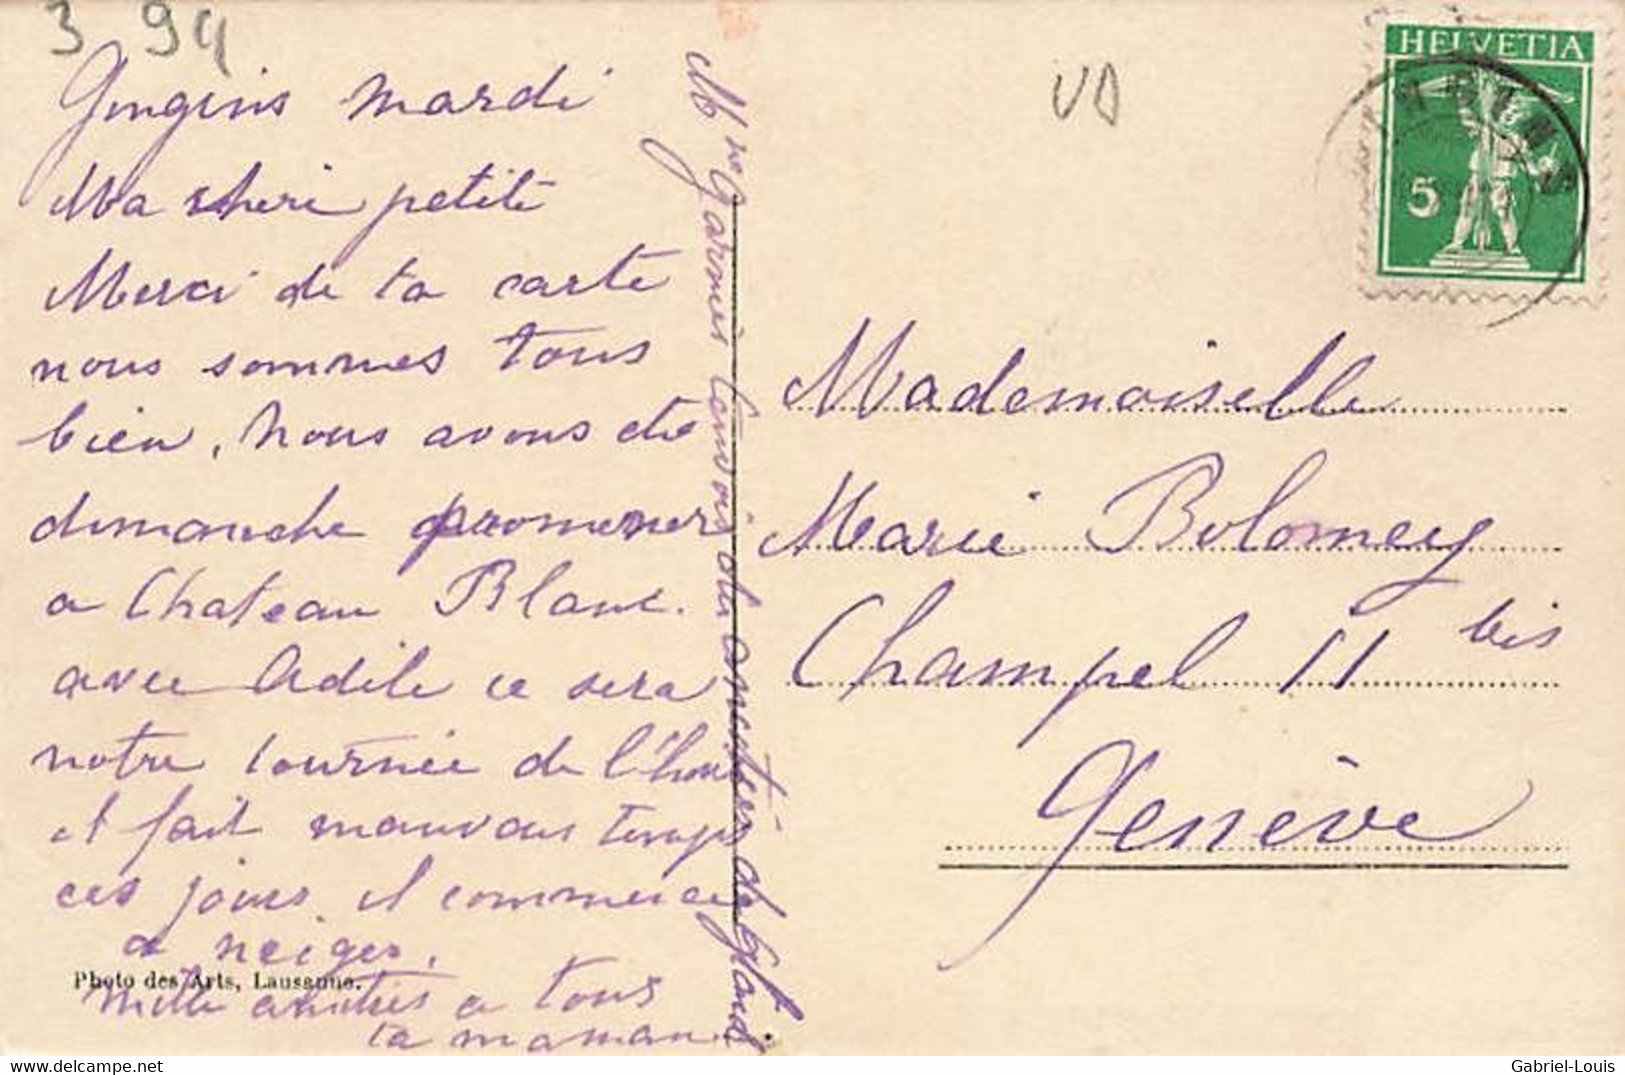 3 94
Gingins Mardi
Ma cheri petite
Merci de ta carte
nous sommes tous
bien, nous avons été
dimanche promener
a Chateau Blanc.
avec Adèle ce sera
notre tournée de
il fait mauvais temps
ces jours, il commence
a neiger.
mille amitiés a tous
ta maman
Photo des Arts, Lausanne.
Mme
VD
HELVETIA
5
Mademoiselle
Marie Bolomey
Champel 11 bis
Genève
Gabriel-Louis